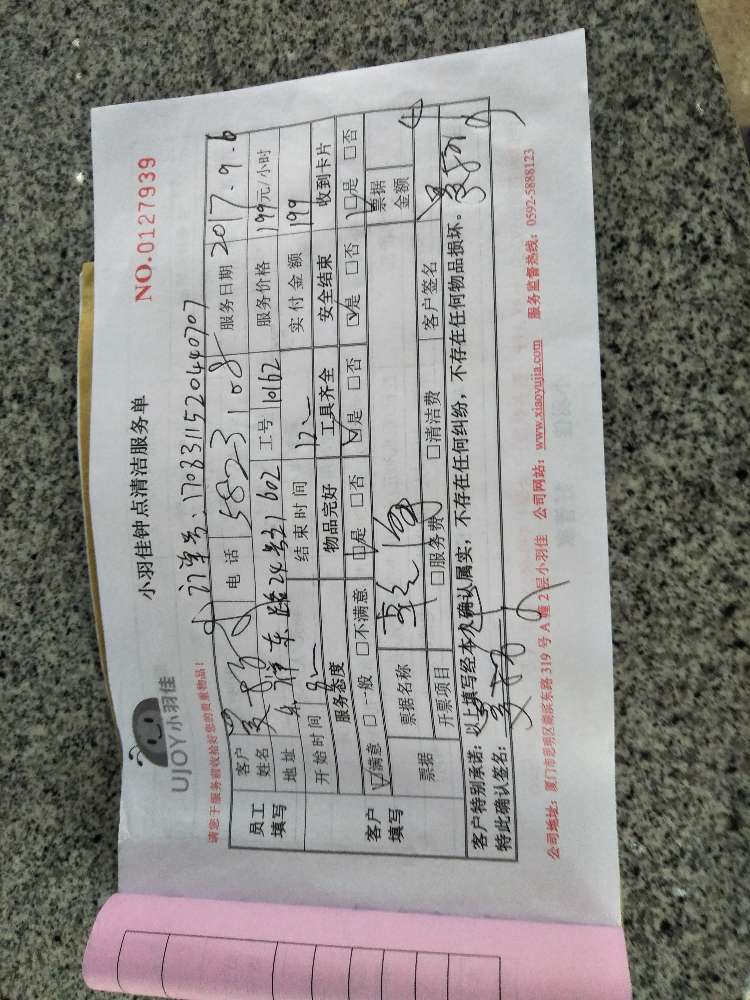 小羽佳钟点清洁服务单
NO.0127939
UJOY小羽佳
请您于服务前收拾好您的贵重物品!
订单号:170831152040707
员工填写 客户姓名 电话 服务日期 2017.9.6
地址 24号 602 工号 10162 服务价格 199元/小时
开始时间 结束时间 实付金额 199
客户填写 服务态度 物品完好 工具齐全 安全结束 收到卡片
☑满意 □一般 □不满意 ☑是 □否 ☑是 □否 ☑是 □否 ☑是 □否
票据 票据名称 票据金额
开票项目 □服务费 □清洁费 客户签名
客户特别承诺:以上填写经本人确认属实,不存在任何纠纷,不存在任何物品损坏。
特此确认签名:
公司地址:厦门市思明区湖滨东路319号A幢2层小羽佳 公司网站:www.xiaoyujia.com 服务监督热线:0592-5888123